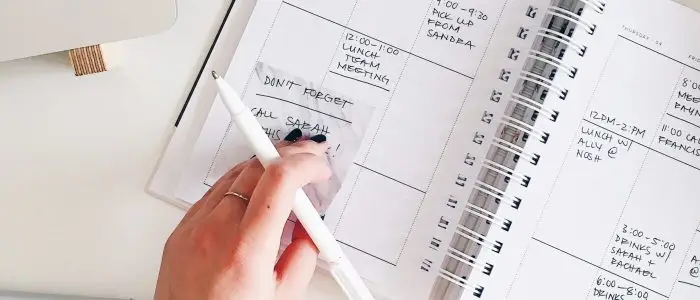 9:00-9:30
PICK UP
FROM
SANDRA
12:00-1:00
LUNCH
TEAM
MEETING
DON'T FORGET
CALL SARAH
THIS
!
THURSDAY
12PM-2PM
LUNCH W/
ALLY @
NOSH
3:00-5:00
DRINKS W/
SARAH +
RACHAEL
8:00
11:00 CALL
FRANCIS
6:00-8:00
DRINKS